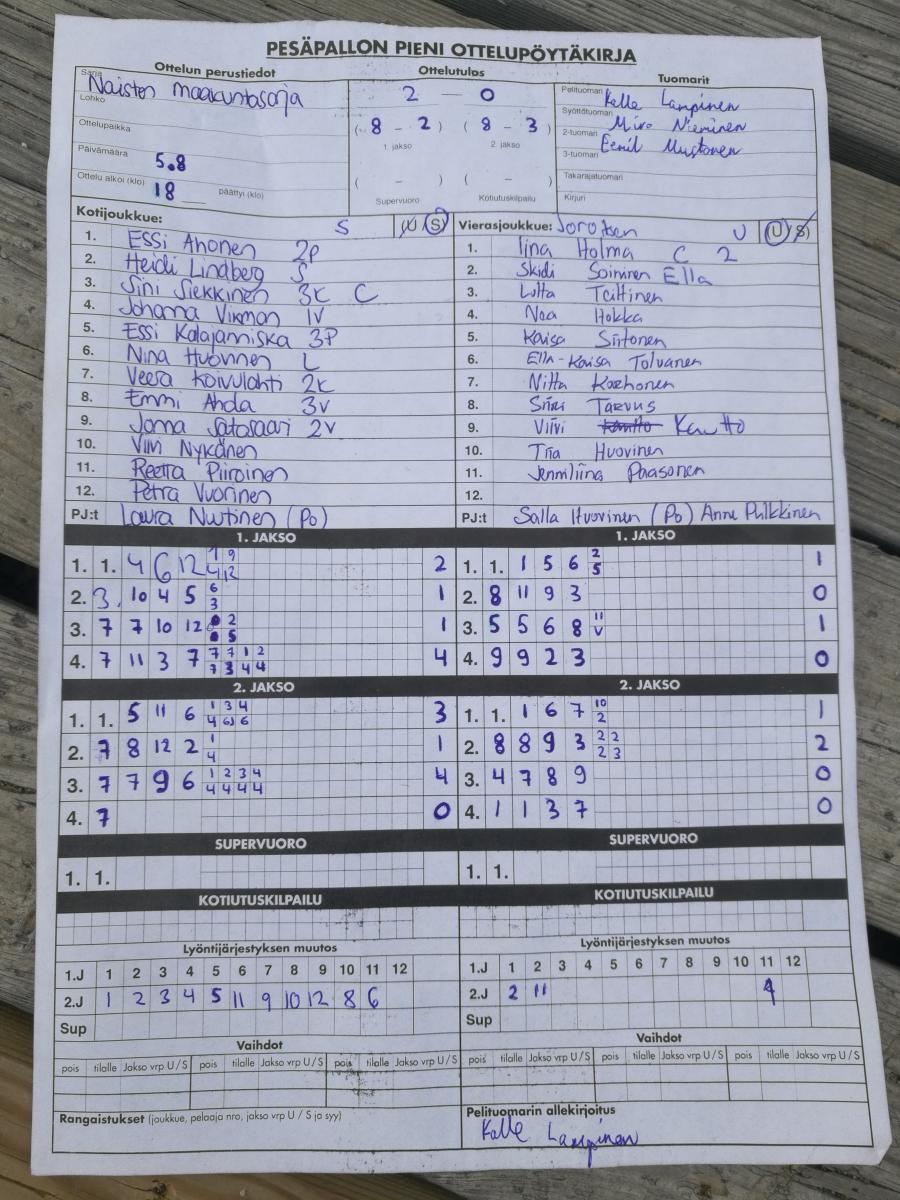 PESÄPALLON PIENI OTTELUPÖYTÄKIRJA
Ottelun perustiedot
Sarja Naisten maakuntasarja
Lohko
Ottelupaikka
Päivämäärä 5.8
Ottelu alkoi (klo) 18 päättyi (klo)
Ottelutulos
2 — 0
( 8 - 2 ) ( 8 - 3 )
1. jakso 2. jakso
( - ) ( - )
Supervuoro Kotiutuskilpailu
Tuomarit
Pelituomari Kalle Lampinen
Syöttötuomari Miro Nieminen
2-tuomari Eemil Mustonen
3-tuomari
Takarajatuomari
Kirjuri
Kotijoukkue: S U S
1. Essi Ahonen 2P
2. Heidi Lindberg S
3. Sini Siekkinen 3K C
4. Johanna Vikman 1V
5. Essi Kalajanniska 3P
6. Nina Huovinen L
7. Veera Koivulahti 2K
8. Emmi Ahda 3V
9. Jonna Satosaari 2V
10. Viivi Nykänen
11. Reetta Piiroinen
12. Petra Vuorinen
PJ:t Laura Nuutinen (Po)
Vierasjoukkue: U U S
1. Iina Holma C 2
2. Skidi Soininen Ella
3. Lotta Teittinen
4. Noa Hokka
5. Kaisa Siitonen
6. Ella-Kaisa Tolvanen
7. Nitta Korhonen
8. Siiri Tarvus
9. Viivi Kautto
10. Tiia Huovinen
11. Jenniliina Paasonen
12.
PJ:t Salla Huovinen (Po) Anne Pulkkinen
1. JAKSO
1. 1. 4 6 12 2
2. 3. 10 4 5 6 1
3
3. 7 7 10 12 2 1
5
4. 7 11 3 7 7 7 1 2 4
7 3 4 4
1. JAKSO
1. 1. 1 5 6 2 1
5
2. 8 11 9 3 0
3. 5 5 6 8 11 1
V
4. 9 9 2 3 0
2. JAKSO
1. 1. 5 11 6 1 3 4 3
2. 7 8 12 2 1 1
4
3. 7 7 9 6 1 2 3 4 4
4 4 4 4
4. 7 0
2. JAKSO
1. 1. 1 6 7 10 1
2
2. 8 8 9 3 2 2 2
2 3
3. 4 7 8 9 0
4. 1 1 3 7 0
SUPERVUORO
1. 1.
SUPERVUORO
1. 1.
KOTIUTUSKILPAILU
KOTIUTUSKILPAILU
Lyöntijärjestyksen muutos
1.J 1 2 3 4 5 6 7 8 9 10 11 12
2.J 1 2 3 4 5 11 9 10 12 8 6
Sup
Lyöntijärjestyksen muutos
1.J 1 2 3 4 5 6 7 8 9 10 11 12
2.J 2 11
Sup
Vaihdot
pois tilalle Jakso vrp U / S pois tilalle Jakso vrp U / S pois tilalle Jakso vrp U / S
Vaihdot
pois tilalle Jakso vrp U / S pois tilalle Jakso vrp U / S pois tilalle Jakso vrp U / S
Rangaistukset (joukkue, pelaaja nro, jakso vrp U / S ja syy)
Pelituomarin allekirjoitus
Kalle Lampinen